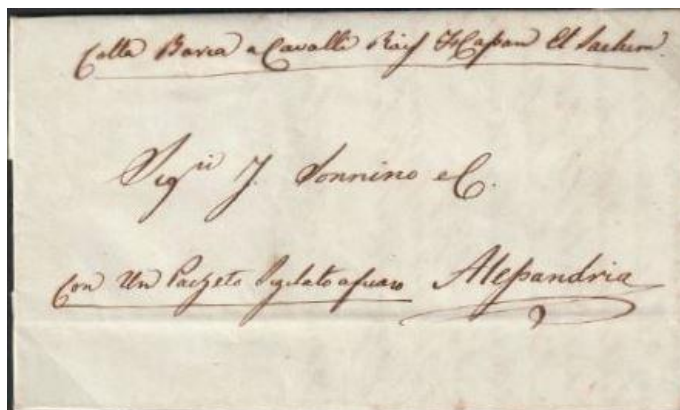 Colla Barca a Cavalli Raif Hassan El
Sig.ri J. Sonnino e C.
Con Un Pacheto Sigilato a fuaro Alessandria